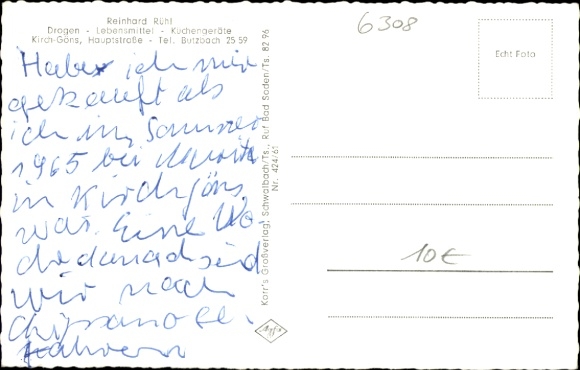 Reinhard Rühl
Drogen - Lebensmittel - Küchengeräte
Kirch-Göns, Hauptstraße - Tel. Butzbach 25 59
Habe ich mir
gekauft als
ich im Sommer
1965 bei
in Kirchgöns
war. Eine Wo
che danach sind
wir nach
gefahren
Korr's Großverlag, Schwalbach/Ts., Ruf Bad Soden/Ts. 82 96
Nr. 424/65
6308
Echt Foto
10 €
Agfa